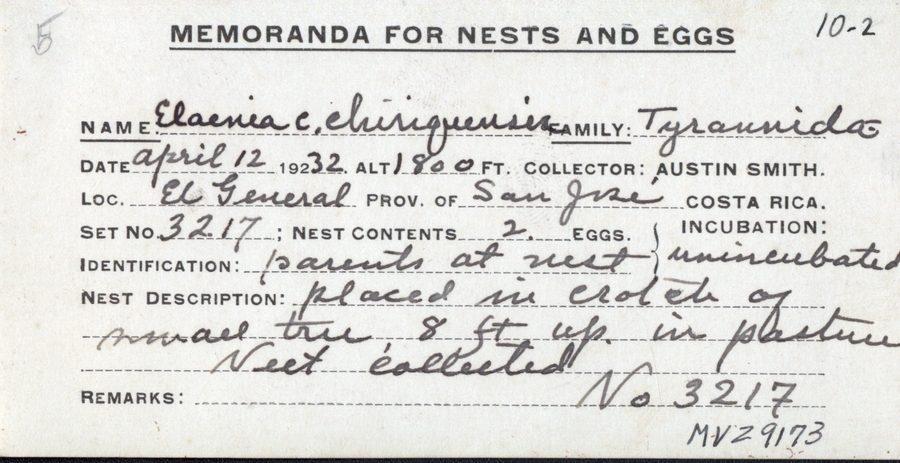 5
MEMORANDA FOR NESTS AND EGGS
10-2
NAME: Elaenia c. chiriquensis FAMILY: Tyrannidae
DATE April 12 19232. ALT 1800 FT. COLLECTOR: AUSTIN SMITH.
LOC. El General PROV. OF San José COSTA RICA.
SET NO. 3217; NEST CONTENTS 2. EGGS. INCUBATION:
IDENTIFICATION: parents at nest unincubated
NEST DESCRIPTION: placed in crotch of
small tree, 8 ft up. in pasture
Nest collected
REMARKS: No 3217
MVZ 9173